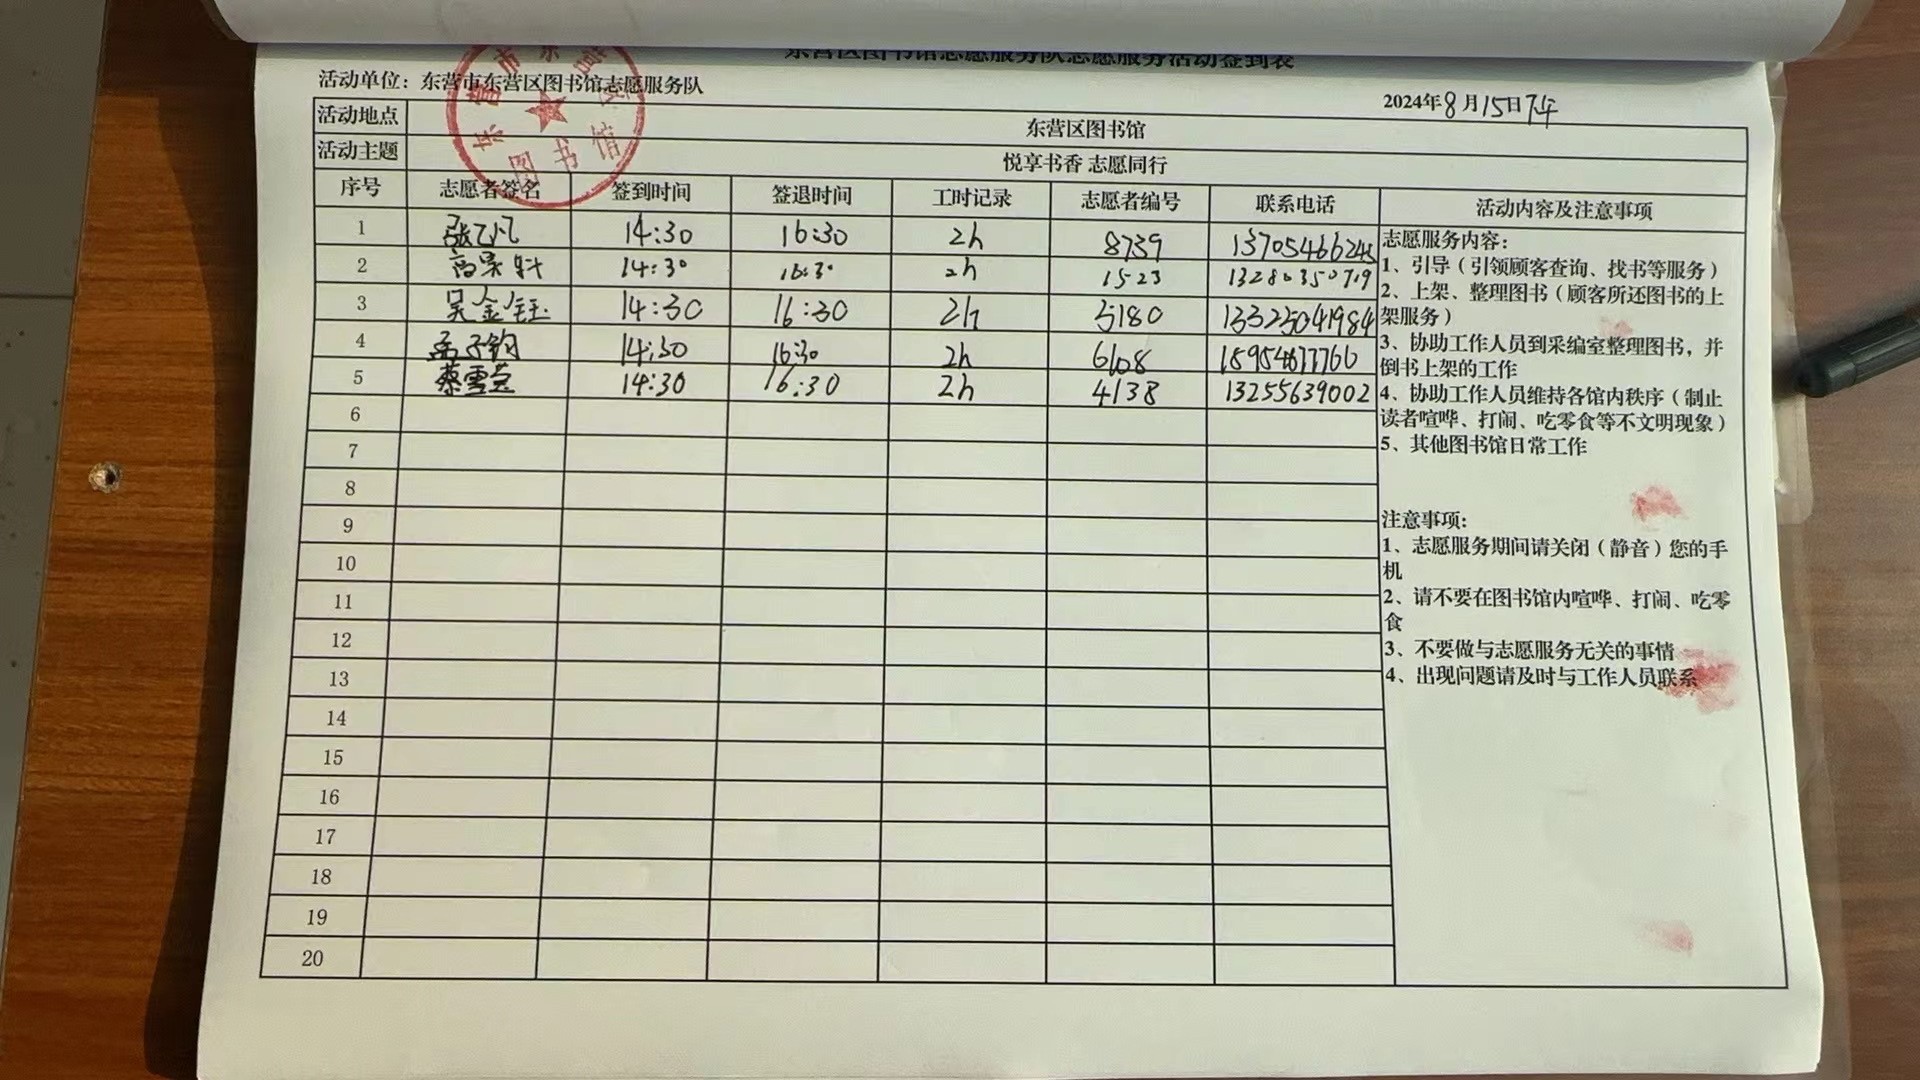 东营区图书馆志愿服务队志愿服务活动签到表
活动单位：东营市东营区图书馆志愿服务队
2024年8月15日下午
东营市东营区图书馆
活动地点 东营区图书馆
活动主题 悦享书香 志愿同行
序号 志愿者签名 签到时间 签退时间 工时记录 志愿者编号 联系电话 活动内容及注意事项
1 张 凡 14:30 16:30 2h 8739 13705466245
2 高 14:30 16:30 2h 1523 13280350719
3 吴金钰 14:30 16:30 2h 5180 13325041984
4 孟子钧 14:30 16:30 2h 6108
5 蔡雪芸 14:30 16:30 2h 4138 13255639002
6
7
8
9
10
11
12
13
14
15
16
17
18
19
20
志愿服务内容：
1、引导（引领顾客查询、找书等服务）
2、上架、整理图书（顾客所还图书的上
架服务）
3、协助工作人员到采编室整理图书，并
倒书上架的工作
4、协助工作人员维持各馆内秩序（制止
读者喧哗、打闹、吃零食等不文明现象）
5、其他图书馆日常工作
注意事项：
1、志愿服务期间请关闭（静音）您的手
机
2、请不要在图书馆内喧哗、打闹、吃零
食
3、不要做与志愿服务无关的事情
4、出现问题请及时与工作人员联系